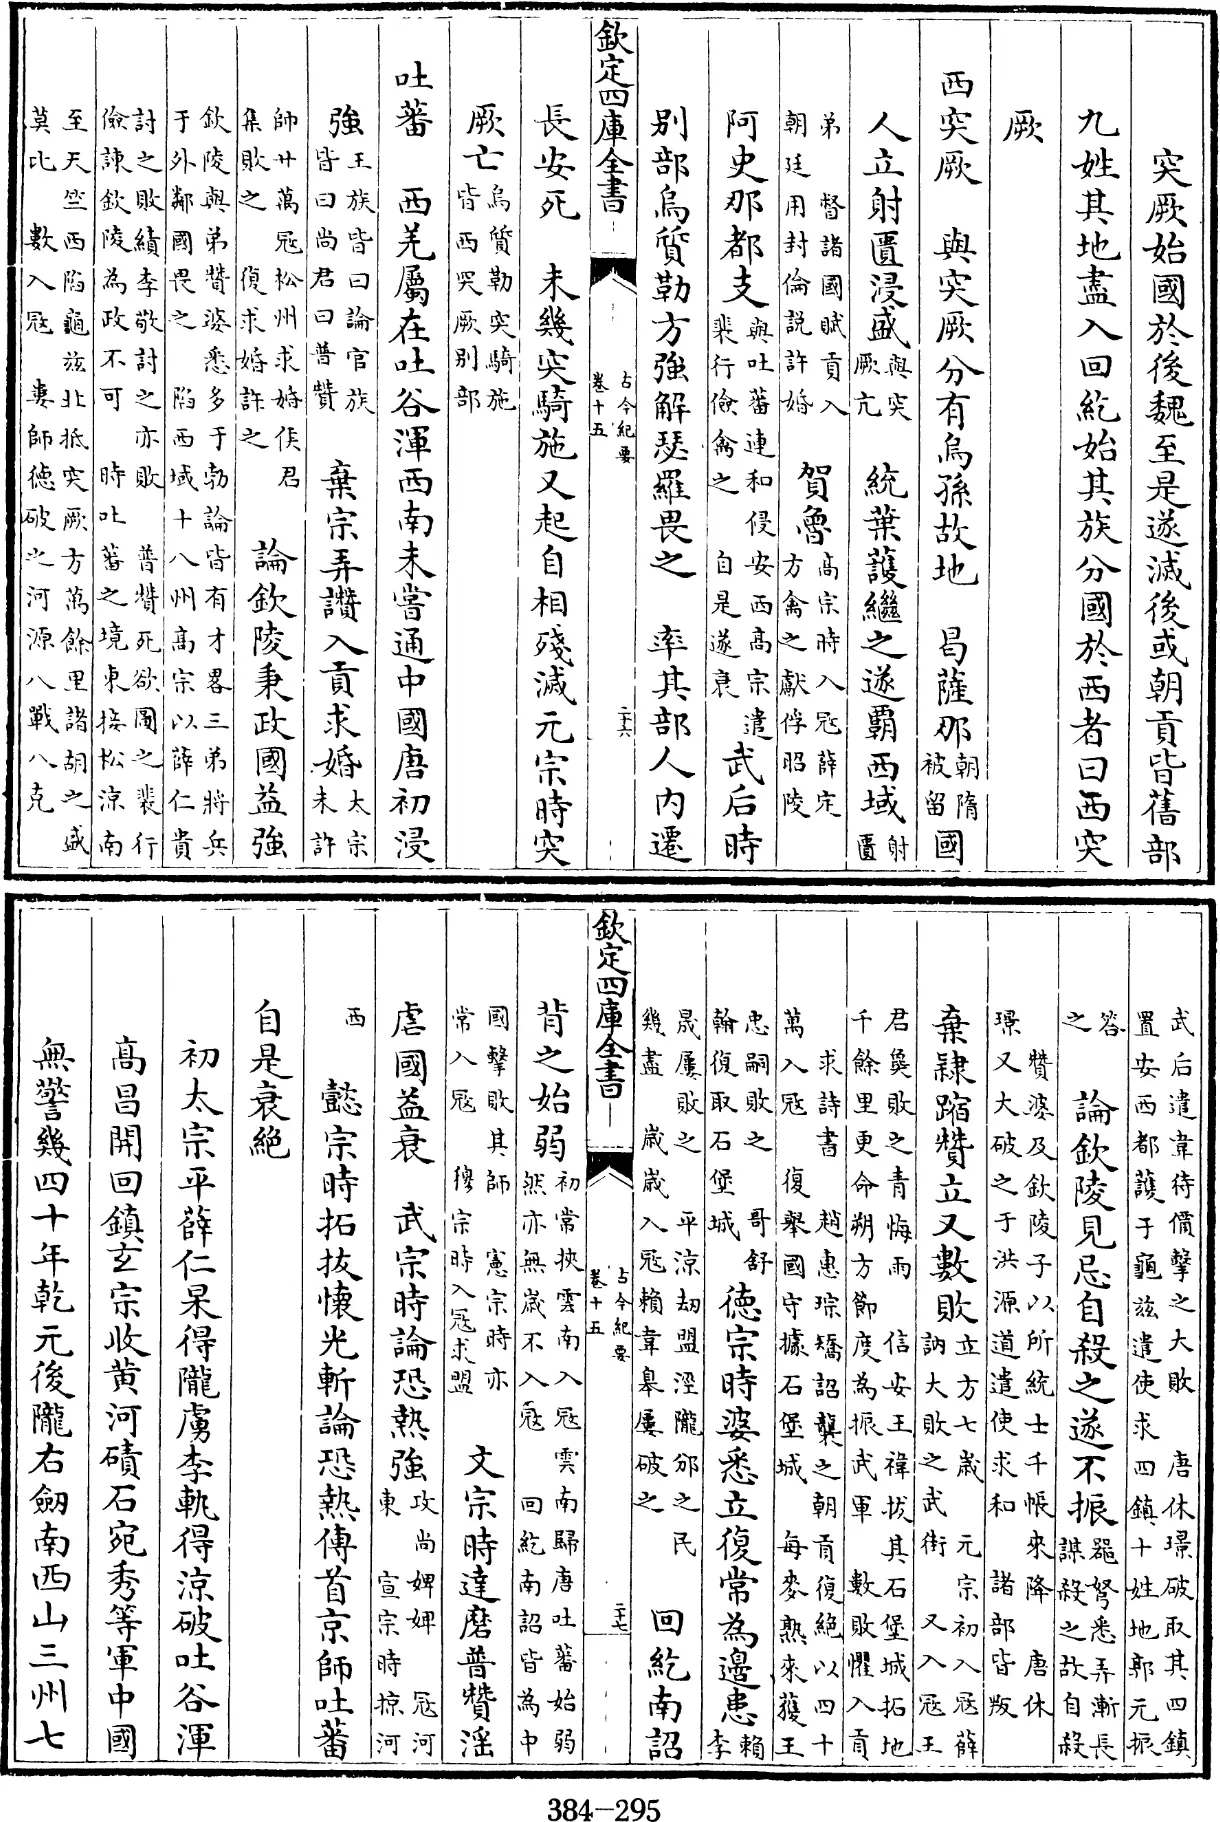 突厥始國於後魏至是遂滅後或朝貢皆舊部
九姓其地盡入回紇始其族分國於西者曰西突
厥
西突厥 與突厥分有烏孫故地 曷薩那朝隋被留國
人立射匱浸盛與突厥亢 統葉護繼之遂覇西域射匱
弟 督諸國賦貢入朝廷用封倫説許婚 賀魯高宗時入冦薛定方禽之獻俘昭陵
阿史那都支與吐蕃連和侵安西髙宗遣裴行儉禽之 自是遂衰 武后時
別部烏質勒方強解瑟羅畏之 率其部人内遷
欽定四庫全書 古今紀要 卷十五 二十六
長安死 未幾突騎施又起自相殘滅元宗時突
厥亡烏質勒突騎施皆西突厥別部
吐蕃 西羌屬在吐谷渾西南未嘗通中國唐初浸
強王族皆曰論官族皆曰尚君曰普贊 棄宗弄讚入貢求婚太宗未許
師廿萬冦松州求婚侯君集敗之 復求婚許之 論欽陵秉政國益強
欽陵與弟贊婆悉多于勃論皆有才畧三弟將兵于外鄰國畏之 陷西域十八州髙宗以薛仁貴
討之敗績李敬討之亦敗 普贊死欲圖之裴行儉諫欽陵為政不可 時吐蕃之境東接松涼南
至天竺西陷龜兹北抵突厥方萬餘里諸胡之盛莫比 數入冦 婁師德破之河源八戰八克
武后遣韋待價擊之大敗 唐休璟破取其四鎮置安西都護于龜兹遣使求四鎮十姓地郭元振
答之 論欽陵見忌自殺之遂不振器弩悉弄漸長謀殺之故自殺
贊婆及欽陵子以所統士千帳來降 唐休璟又大破之于洪源道遣使求和 諸部皆叛
棄隷蹜贊立又數敗立方七歲 元宗初入冦薛訥大敗之武街 又入冦王
君㚟敗之青海雨 信安王禕拔其石堡城拓地千餘里更命朔方節度為振武軍 數敗懼入貢
求詩書 趙惠琮矯詔襲之朝貢復絶以四十萬入冦 復舉國守據石堡城 每麥熟來穫王
忠嗣敗之 哥舒翰復取石堡城 德宗時婆悉立復常為邊患賴李
晟屢敗之 平涼劫盟涇隴邠之民幾盡 歲歲入冦賴韋臯屢破之 回紇南詔
欽定四庫全書 古今紀要 卷十五 二十七
背之始弱初常挾雲南入冦雲南歸唐吐蕃始弱然亦無歲不入冦 回紇南詔皆為中
國擊敗其師 憲宗時亦常入冦 穆宗時入冦求盟 文宗時達磨普贊淫
虐國益衰 武宗時論恐熱強攻尚婢婢 冦河東 宣宗時掠河
西 懿宗時拓拔懐光斬論恐熱傳首京師吐蕃
自是衰絶
初太宗平薛仁杲得隴虜李軌得涼破吐谷渾
髙昌開回鎮玄宗收黄河磧石宛秀等軍中國
無警幾四十年乾元後隴右劒南西山三州七
384-295